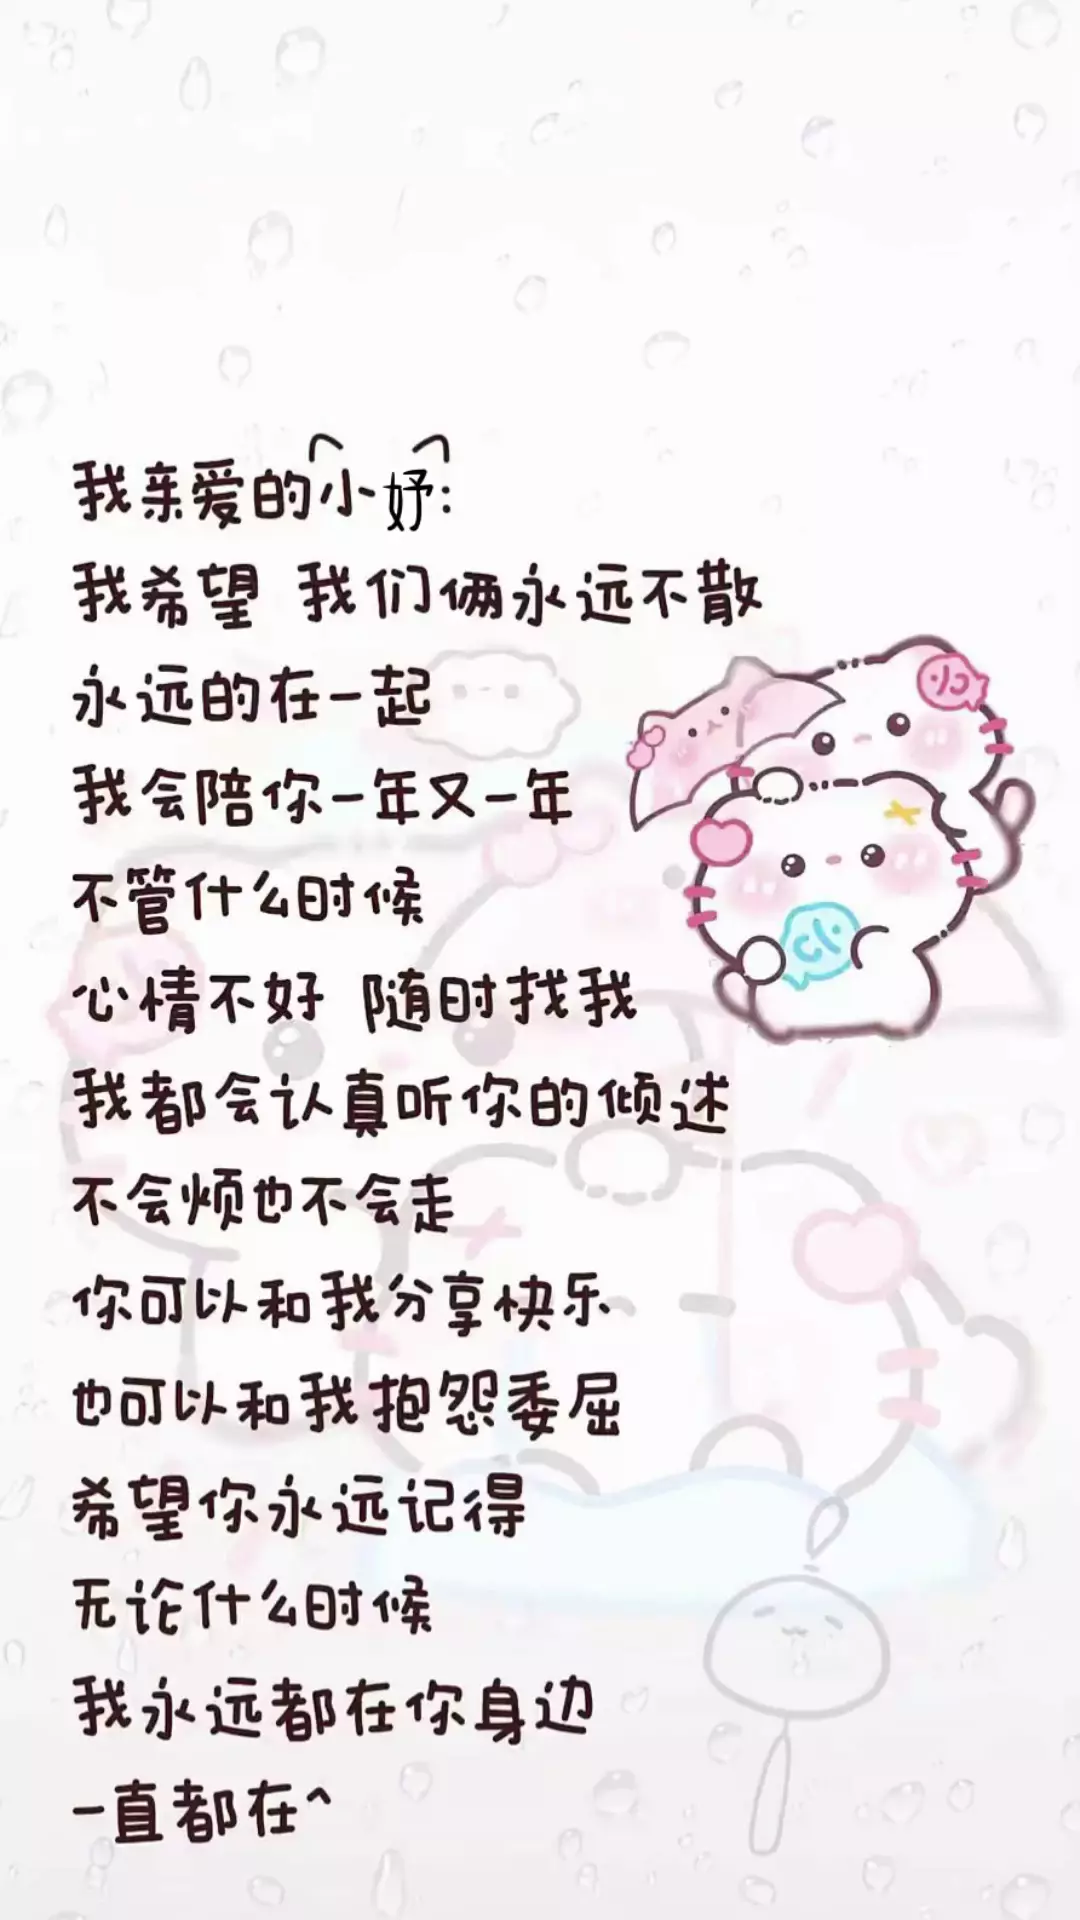 我亲爱的小妤:
我希望 我们俩永远不散
永远的在一起
我会陪你一年又一年
不管什么时候
心情不好 随时找我
我都会认真听你的倾述
不会烦也不会走
你可以和我分享快乐
也可以和我抱怨委屈
希望你永远记得
无论什么时候
我永远都在你身边
一直都在^